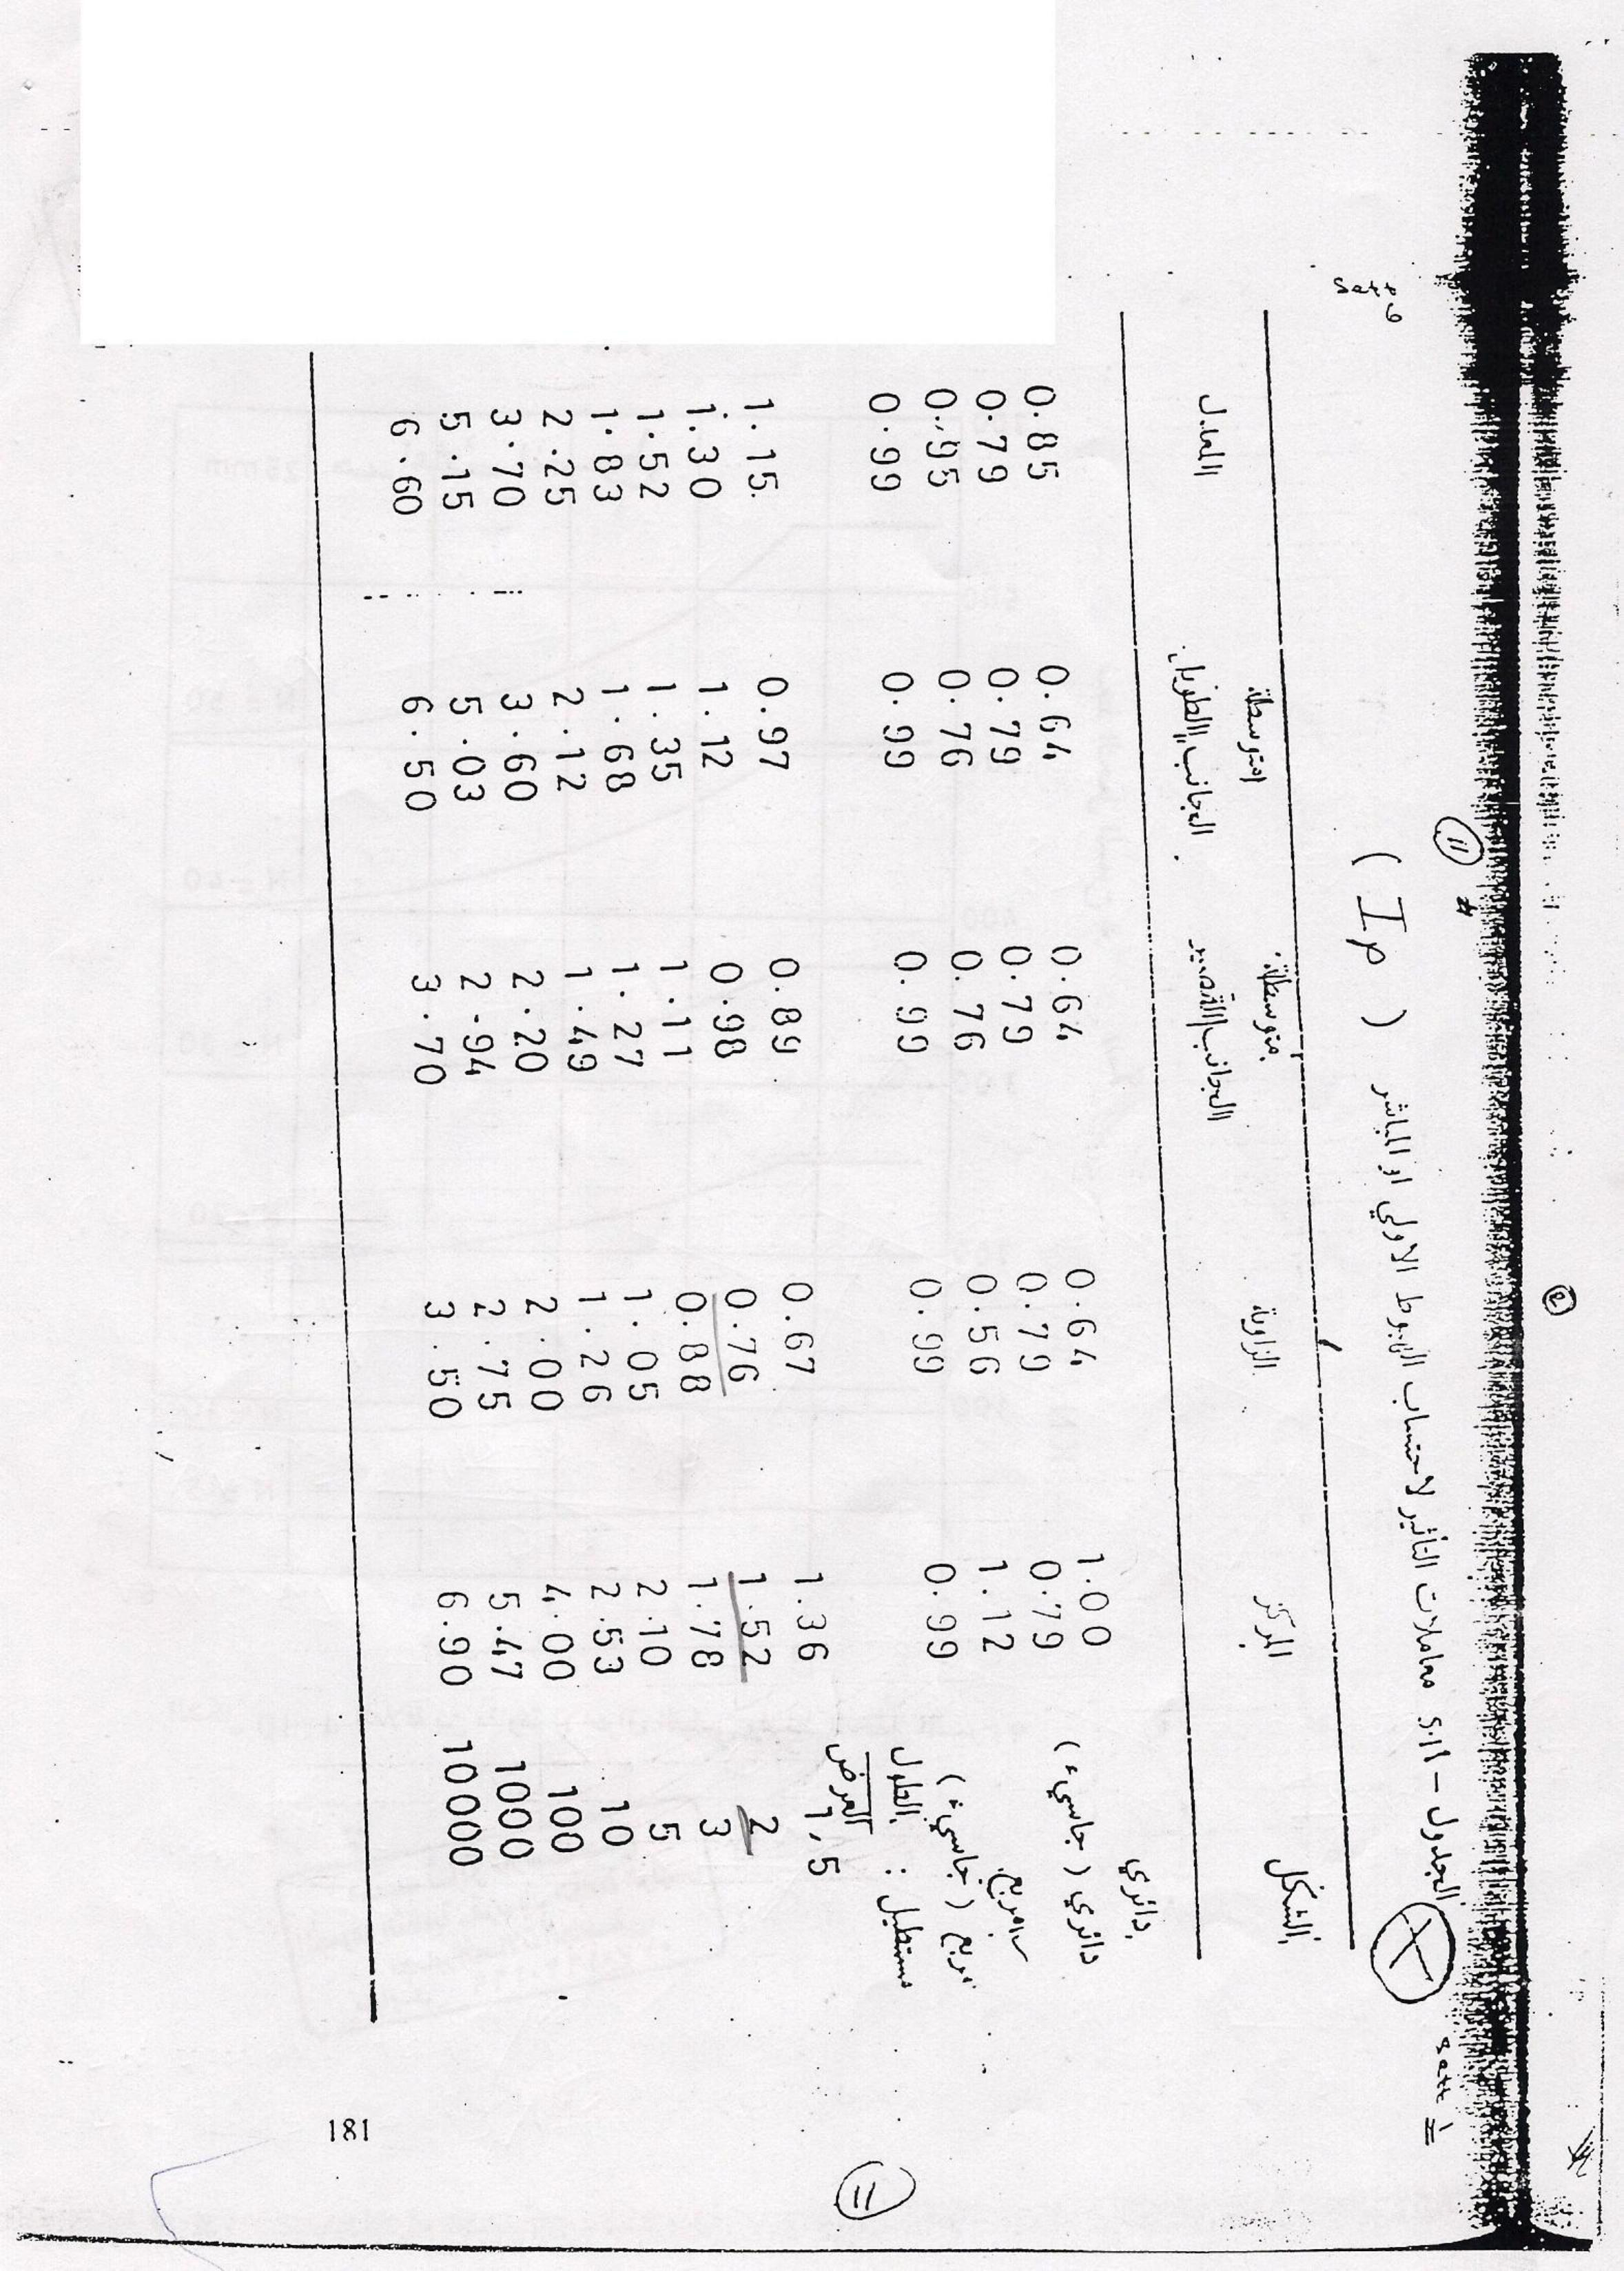 الجدول - 5.11 معاملات التأثير لاحتساب الهبوط الاولي او المباشر ( Ip )
الشكل المركز الزاوية متوسطة الجانب القصير متوسطة الجانب الطويل المعدل
دائري 1.00 0.64 0.64 0.64 0.85
دائري ( جاسيء ) 0.79 0.79 0.79 0.79 0.79
مربع 1.12 0.56 0.76 0.76 0.95
مربع ( جاسيء ) 0.99 0.99 0.99 0.99 0.99
مستطيل : الطول
العرض
1,5 1.36 0.67 0.89 0.97 1.15
2 1.52 0.76 0.98 1.12 1.30
3 1.78 0.88 1.11 1.35 1.52
5 2.10 1.05 1.27 1.68 1.83
10 2.53 1.26 1.49 2.12 2.25
100 4.00 2.00 2.20 3.60 3.70
1000 5.47 2.75 2.94 5.03 5.15
10000 6.90 3.50 3.70 6.50 6.60
181
11
11